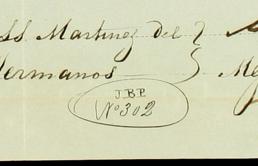 SS Martinez del
Hermanos
J.B.P.
No 302